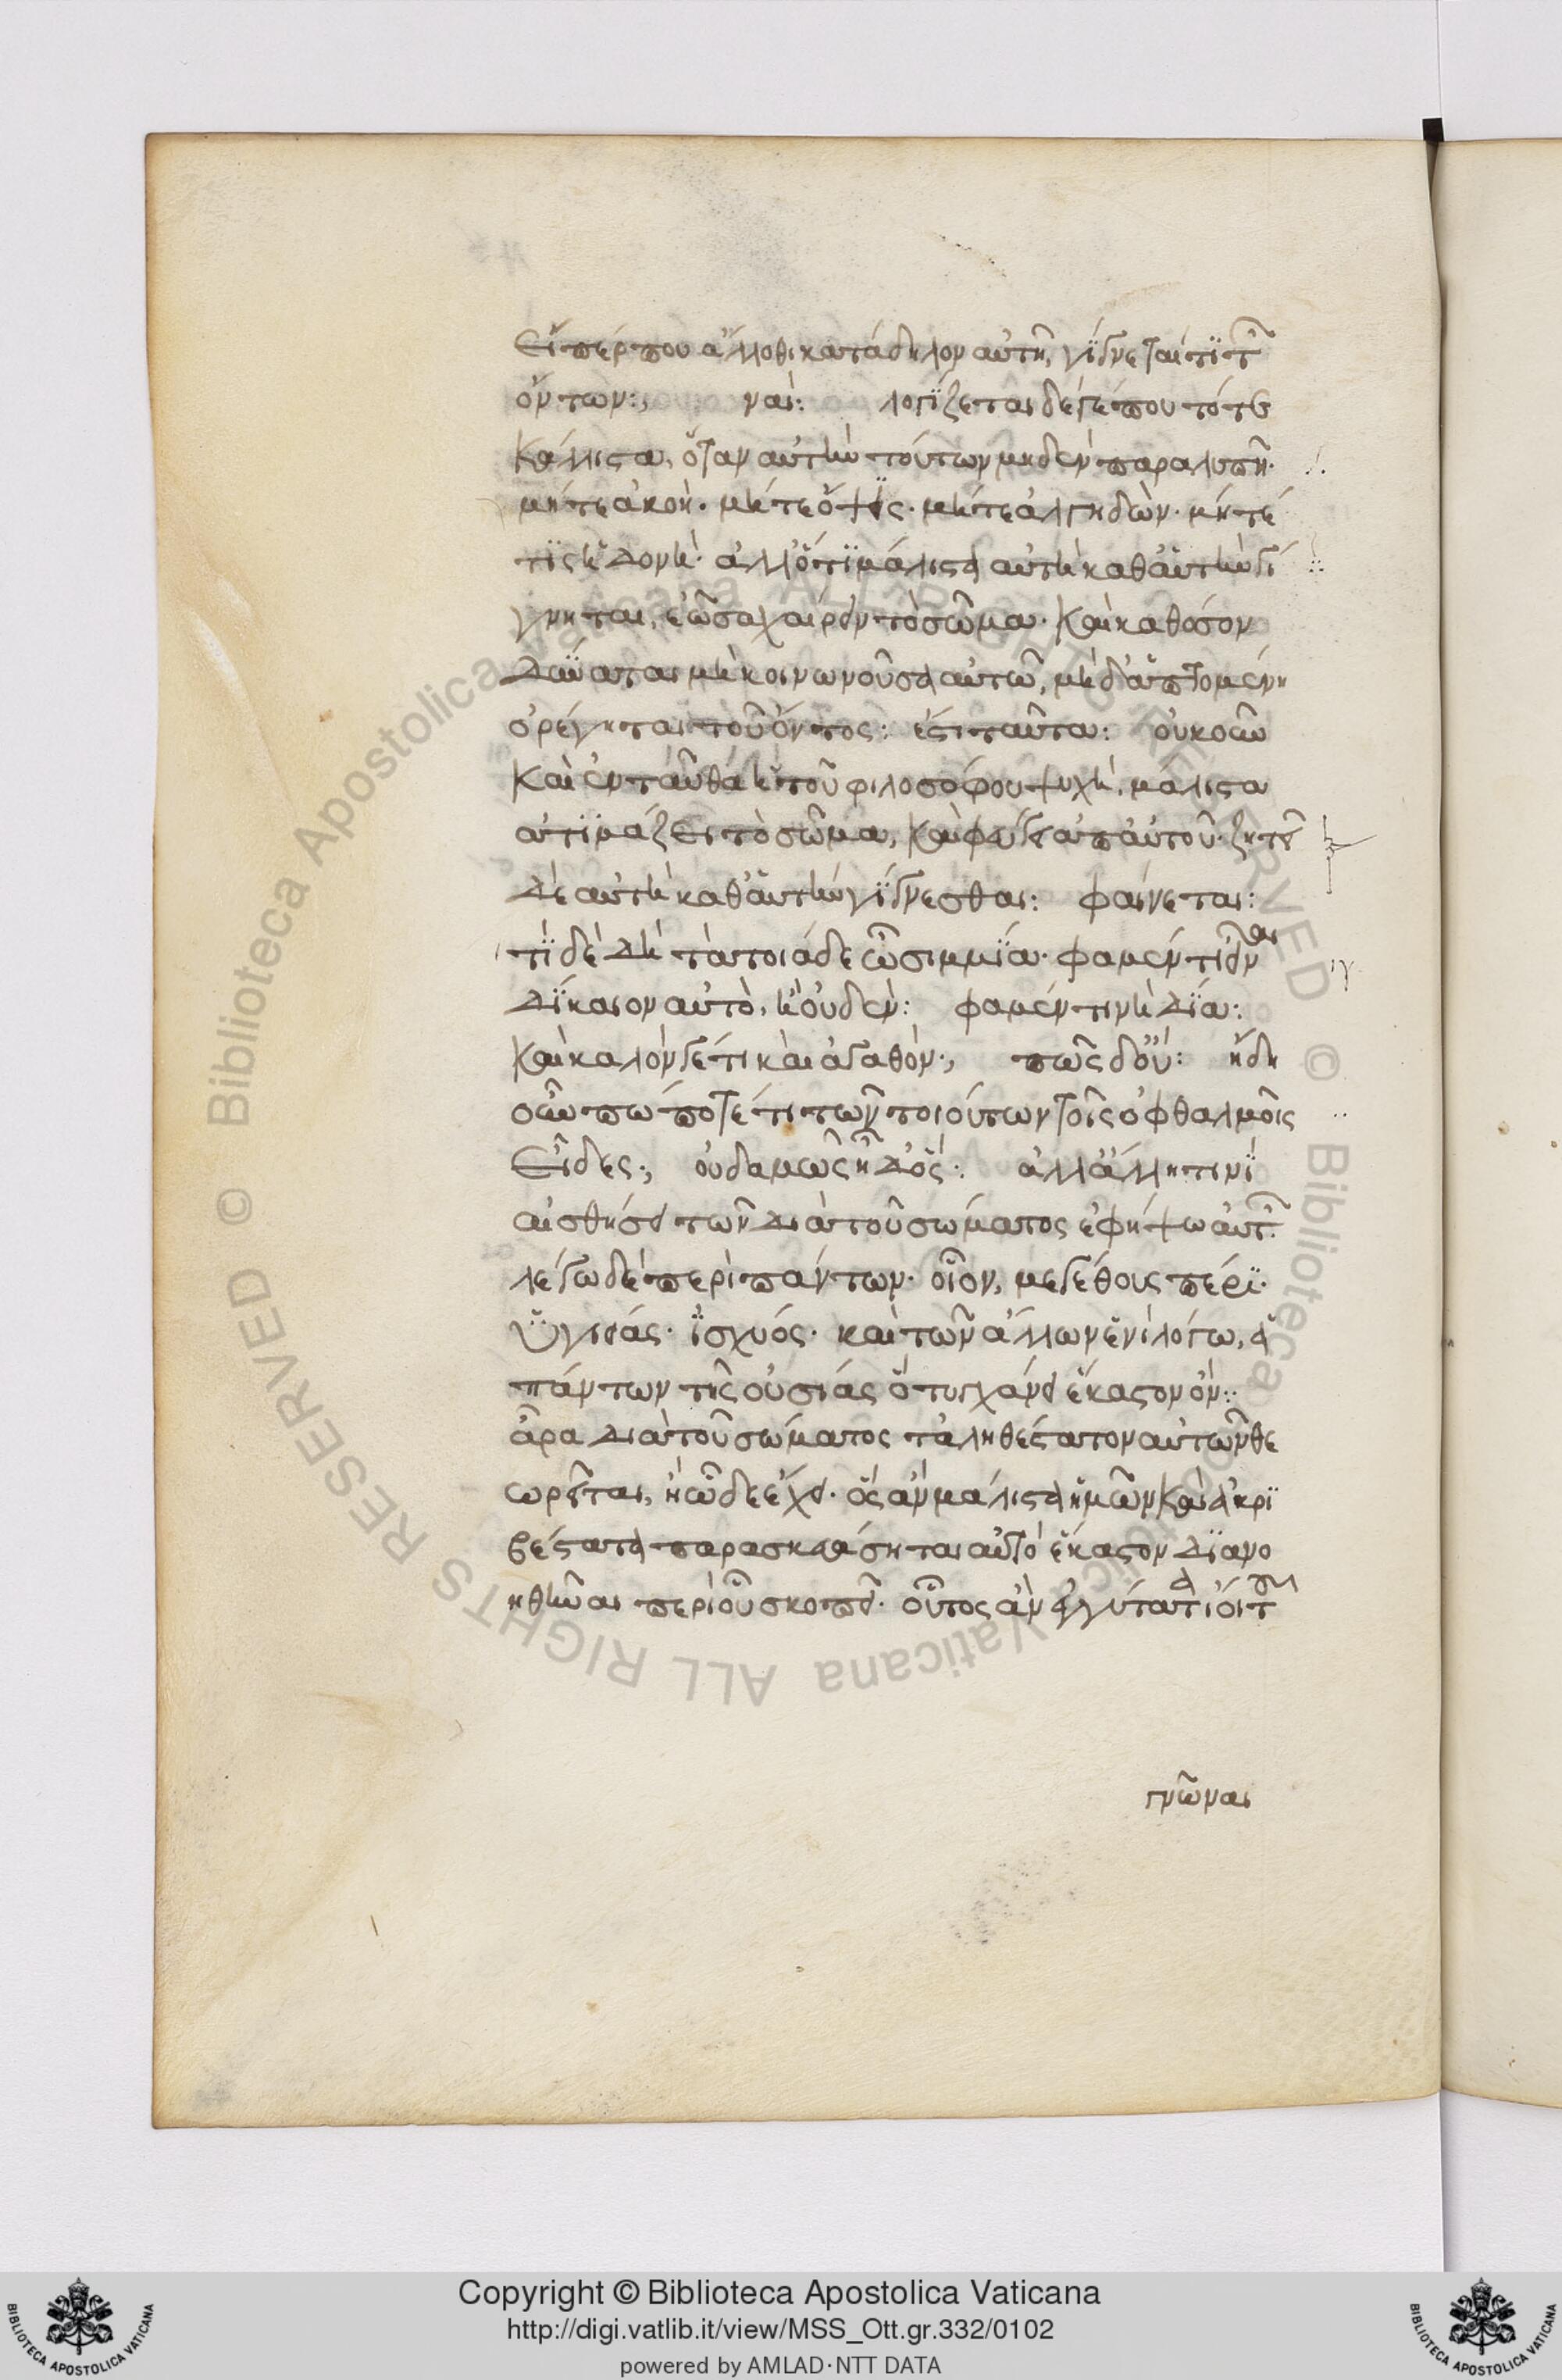 Εἴπερ που ἄλλοθι κατάδηλον αὐτῆ, γίγνεταί τι τῶν
ὄντων:, ναί: λογίζεται δέ γέ που τότε
κάλλιστα, ὅταν αὐτὴν τούτων μηδὲν παραλυπῆ·
μήτε ἀκοή· μήτε ὄψις· μήτε ἀλγηδών· μήτέ
τις ἡδονή· ἀλλ' ὅτι μάλιστα αὐτὴ καθ' αὑτὴν γί
γνηται, ἐῶσα χαίρειν τὸ σῶμα· καὶ καθόσον
δύναται μὴ κοινωνοῦσα αὐτῶ, μὴ δ' ἁπτομένη
ὀρέγηται τοῦ ὄντος: ἔστι ταῦτα: οὐκοῦν
καὶ ἐνταῦθα ἡ τοῦ φιλοσόφου ψυχή, μάλιστα
ἀτιμάζει τὸ σῶμα, καὶ φεύγει ἀπ' αὐτοῦ· ζητεῖ
δὲ αὐτὴ καθ' αὑτὴν γίγνεσθαι: φαίνεται:
τί δὲ δὴ τὰ τοιάδε ὦ σιμμία· φαμέν τι εἶναι
δίκαιον αὐτὸ, ἢ οὐδέν: φαμέν τι νὴ δία:
καὶ καλόν γέ τι καὶ ἀγαθόν:, πῶς δ' οὔ: ἤδη
οὖν πώποτέ τι τῶν τοιούτων τοῖς ὀφθαλμοῖς
εἶδες:, οὐδαμῶς ἦ δ' ὅς: ἀλλ' ἄλλη τινὶ
αἰσθήσει τῶν διὰ τοῦ σώματος ἐφήψω αὐτῶν:
λέγω δὲ περὶ πάντων· οἷον, μεγέθους πέρι·
ὑγιείας· ἰσχύος· καὶ τῶν ἄλλων ἑνὶ λόγω, ἁ
πάντων τῆς οὐσίας ὃ τυγχάνει ἕκαστον ὄν:
ἆρα διὰ τοῦ σώματος τἀληθέστατον αὐτῶν θε
ωρεῖται, ἢ ὧδε ἔχει· ὃς ἂν μάλιστα ἡμῶν καὶ ἀκρι
βέστατα παρασκευάσηται αὐτὸ ἕκαστον διανο
ηθῆναι περὶ οὗ σκοπεῖ· οὗτος ἂν ἐγγύτατα ἴοι τοῦ
γνῶναι
Copyright © Biblioteca Apostolica Vaticana
http://digi.vatlib.it/view/MSS_Ott.gr.332/0102
powered by AMLAD·NTT DATA